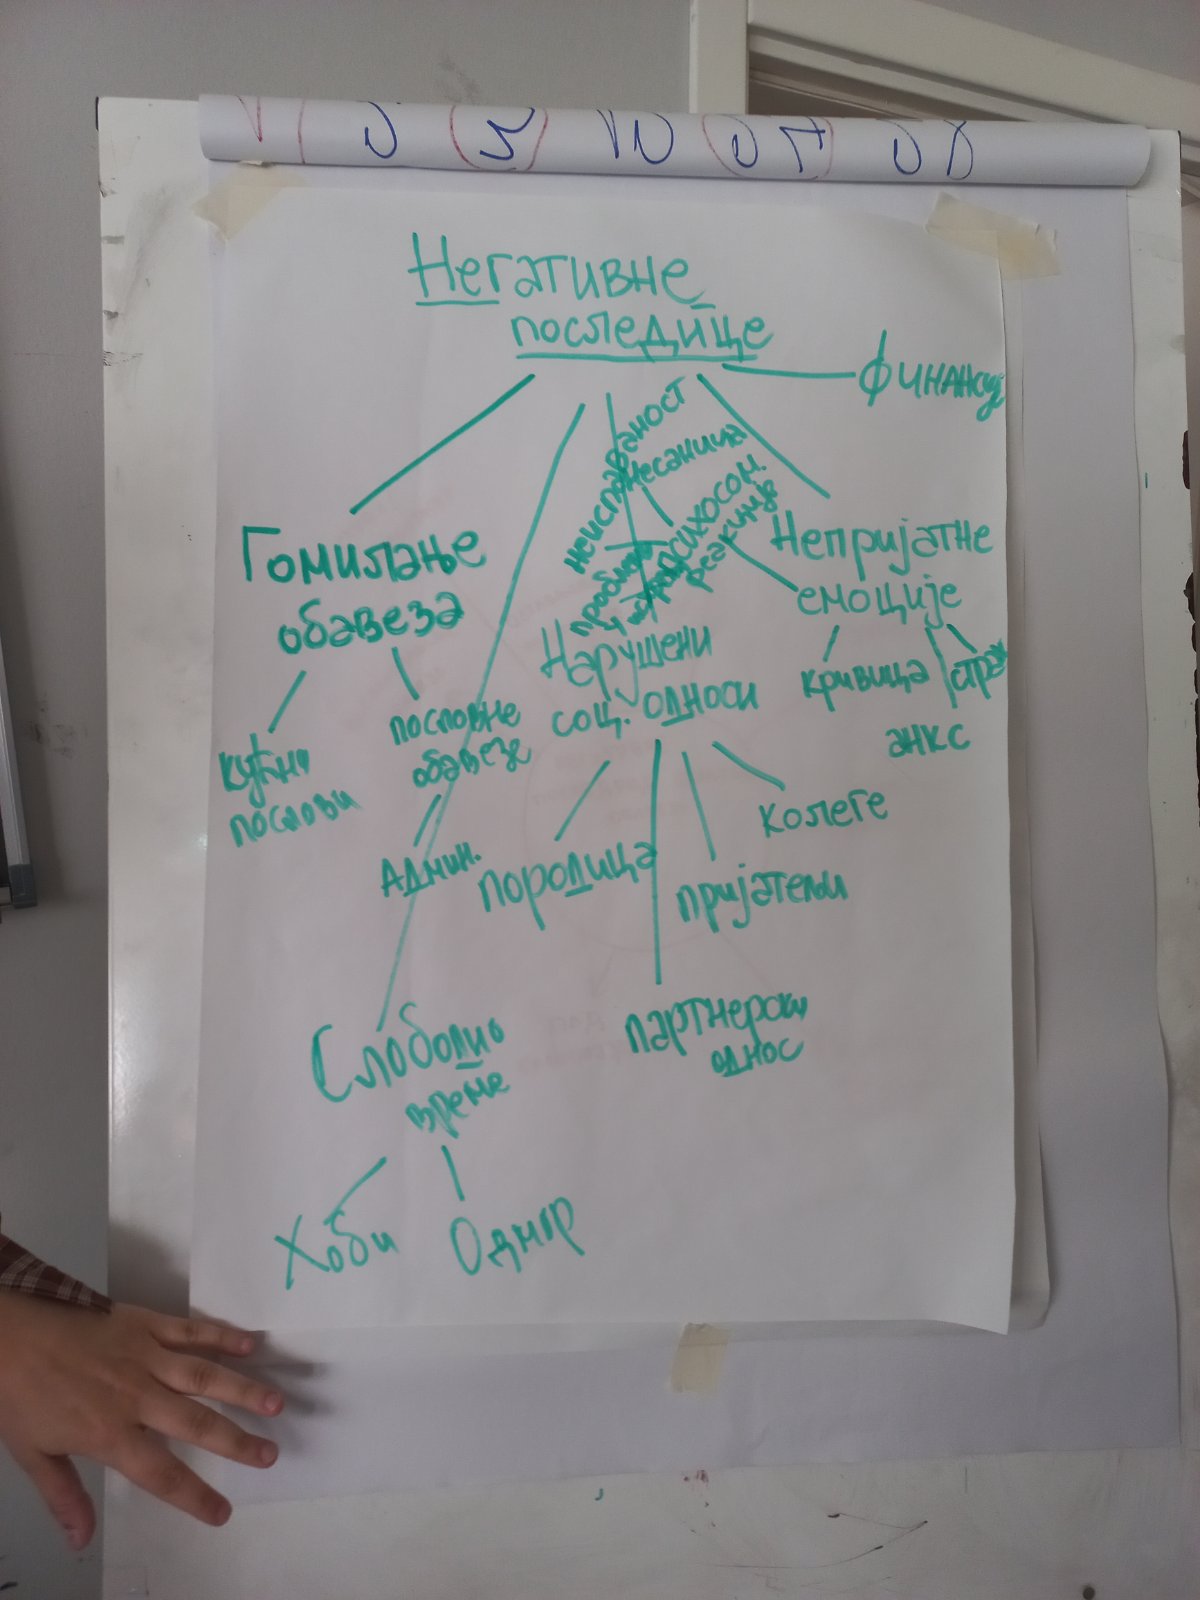 Негативне
последице
Финансиј
неиспаваност
несаница
психосом.
реакције
Гомилање
обавеза
Непријатне
емоције
кривица
страх
анкс
Нарушени
соц. односи
кућни
послови
пословне
обавезе
Админ.
породица
пријатељи
колеге
партнерски
однос
Слободно
време
Хоби
Одмор